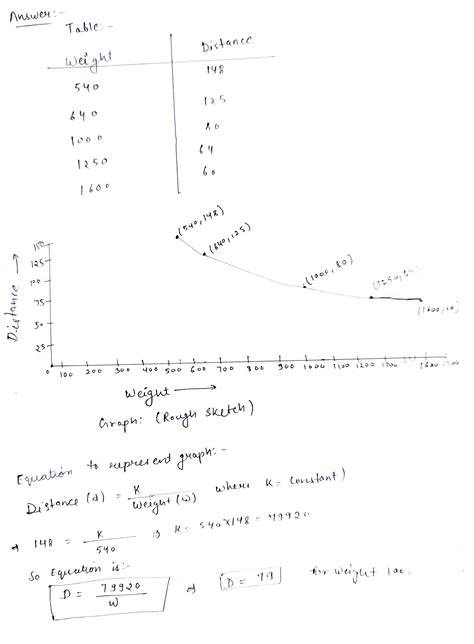 Answer:-
Table:-
Weight Distance
540 148
640 125
1000 80
1250 64
1600 60
(540, 148)
(640, 125)
(1000, 80)
(1250, 64)
(1600, 60)
150
125
100
75
50
25
Distance →
0 100 200 300 400 500 600 700 800 900 1000 1100 1200 1300 1500 1600
Weight →
Graph: (Rough Sketch)
Equation to represent graph:-
Distance (d) = K / Weight (w) where K = Constant)
⇒ 148 = K / 540 ⇒ K = 540 × 148 = 79920
So Equation is:-
D = 79920 / W ⇒ D = 79 for weight 100.